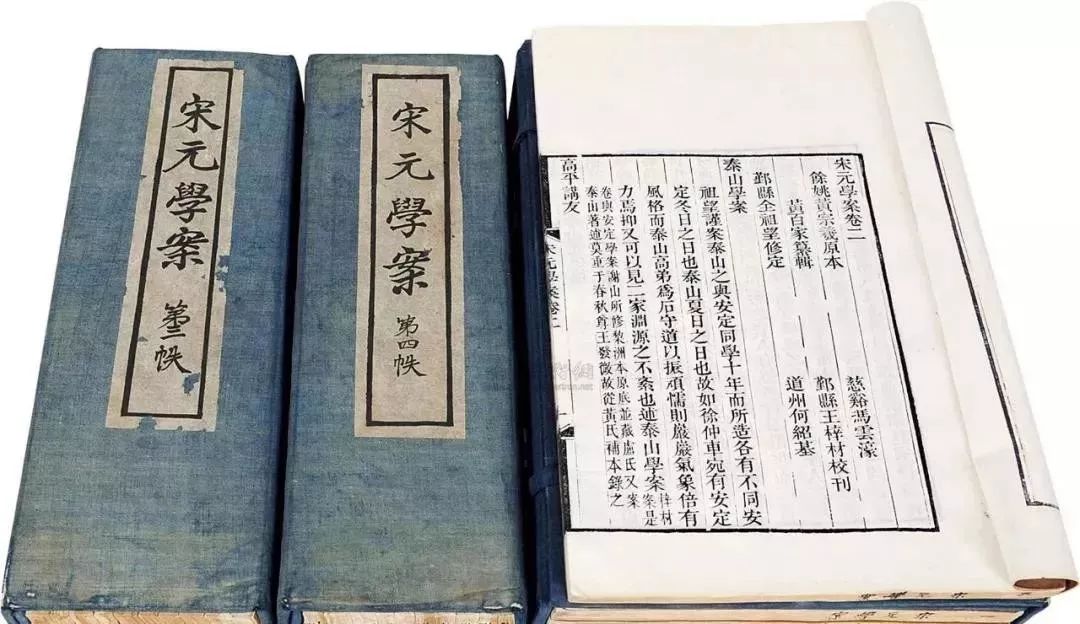 宋元學案
第三帙
宋元學案
第四帙
宋元學案卷二
餘姚黃宗羲原本 慈谿馮雲濠
黃百家纂輯 鄞縣王梓材校刊
鄞縣全祖望修定 道州何紹基
泰山學案
祖望謹案泰山之與安定同學十年而所造各有不同安
定冬日之日也泰山夏日之日也故如徐仲車宛有安定
風格而泰山高弟爲石守道以振頑懦則巖巖氣象倍有
力焉抑又可以見二家淵源之不紊也述泰山學案 梓材案是
卷與安定學案謝山所修棃洲本原底並藏盧氏又案
泰山著述莫重于春秋尊王發微故從黃氏補本錄之
高平講友
宋元學案卷二